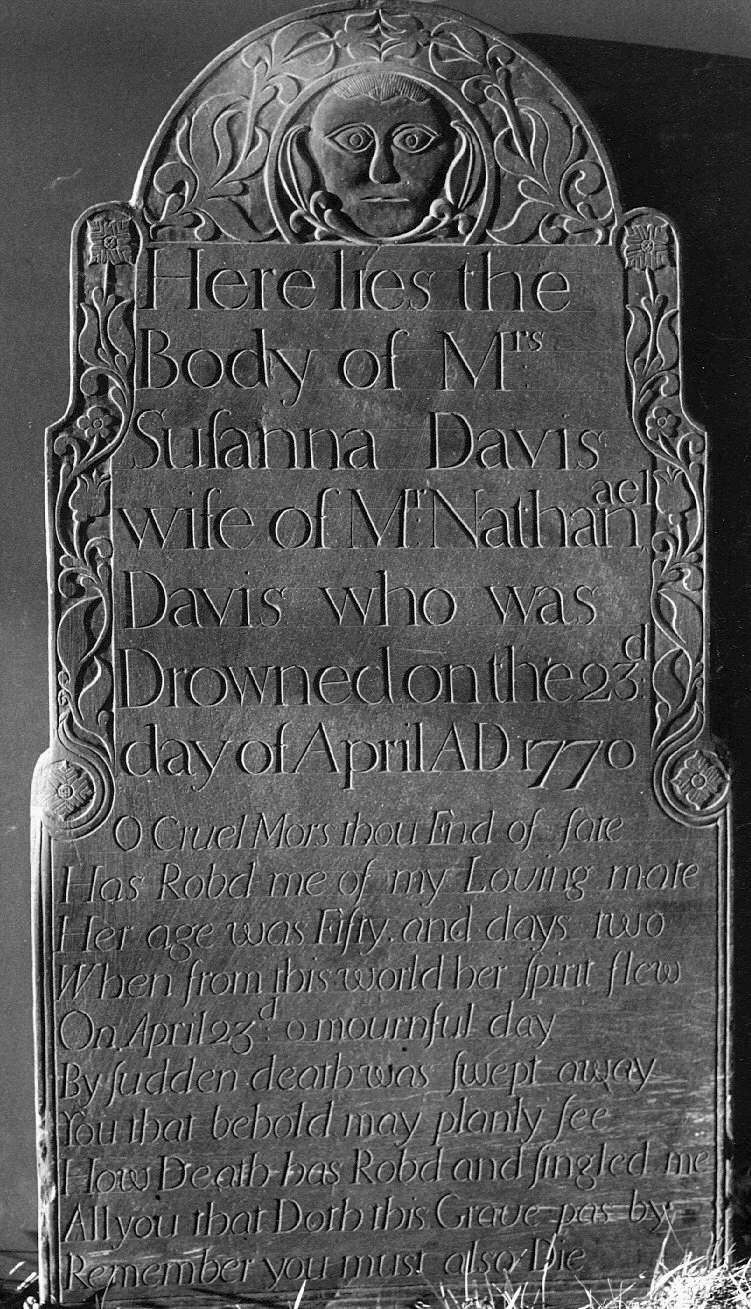 Here lies the
Body of Mrs
Suſanna Davis
wife of Mr. Nathanael
Davis who was
Drowned on the 23d
day of April AD 1770
O Cruel Mors thou End of fate
Has Robd me of my Loving mate
Her age was Fifty and days two
When from this world her ſpirit flew
On April 23d o mournful day
By ſudden death was ſwept away
You that behold may planly ſee
How Death has Robd and ſingled me
All you that Doth this Grave pas by
Remember you must also Die